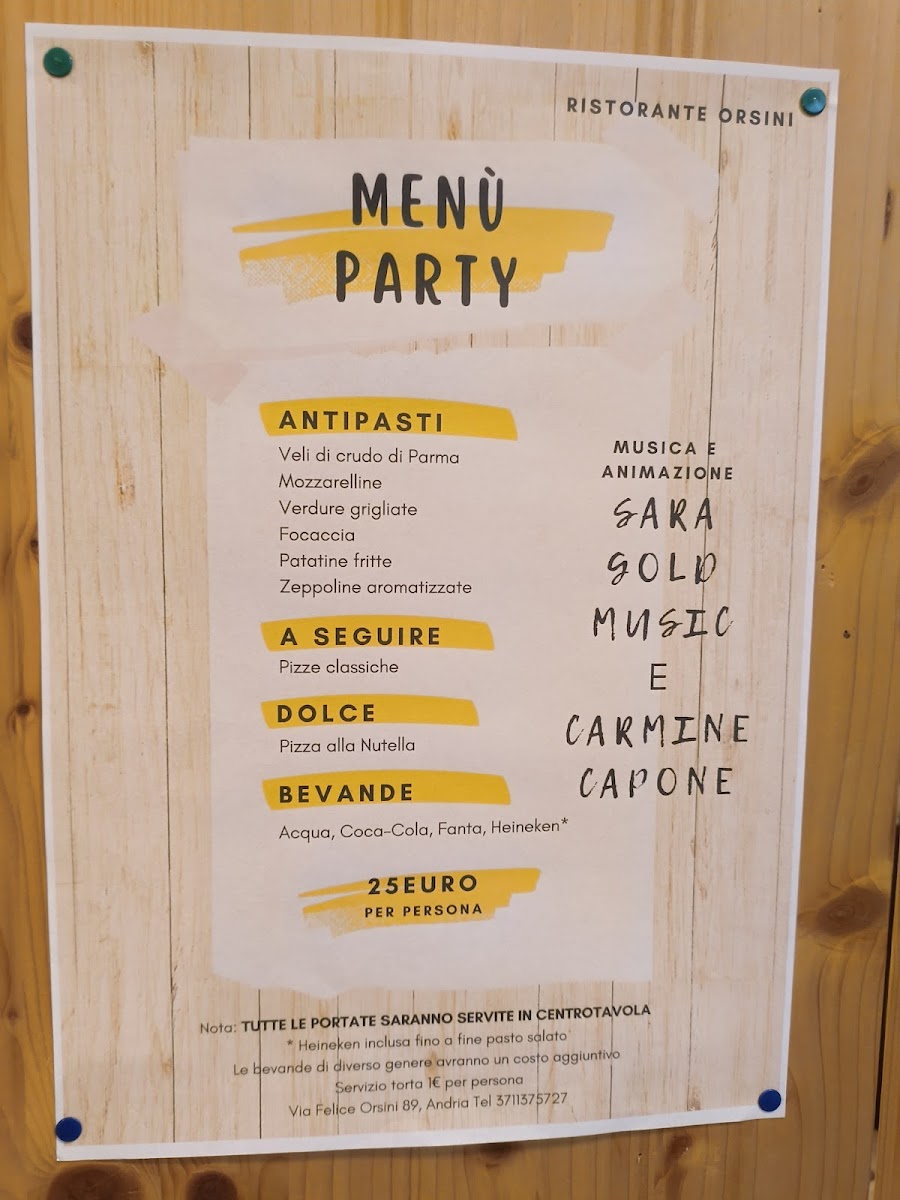 RISTORANTE ORSINI
MENÙ
PARTY
ANTIPASTI
Veli di crudo di Parma
Mozzarelline
Verdure grigliate
Focaccia
Patatine fritte
Zeppoline aromatizzate
A SEGUIRE
Pizze classiche
DOLCE
Pizza alla Nutella
BEVANDE
Acqua, Coca-Cola, Fanta, Heineken*
25EURO
PER PERSONA
MUSICA E
ANIMAZIONE
SARA
GOLD
MUSIC
E
CARMINE
CAPONE
Nota: TUTTE LE PORTATE SARANNO SERVITE IN CENTROTAVOLA
* Heineken inclusa fino a fine pasto salato
Le bevande di diverso genere avranno un costo aggiuntivo
Servizio torta 1€ per persona
Via Felice Orsini 89, Andria Tel 3711375727